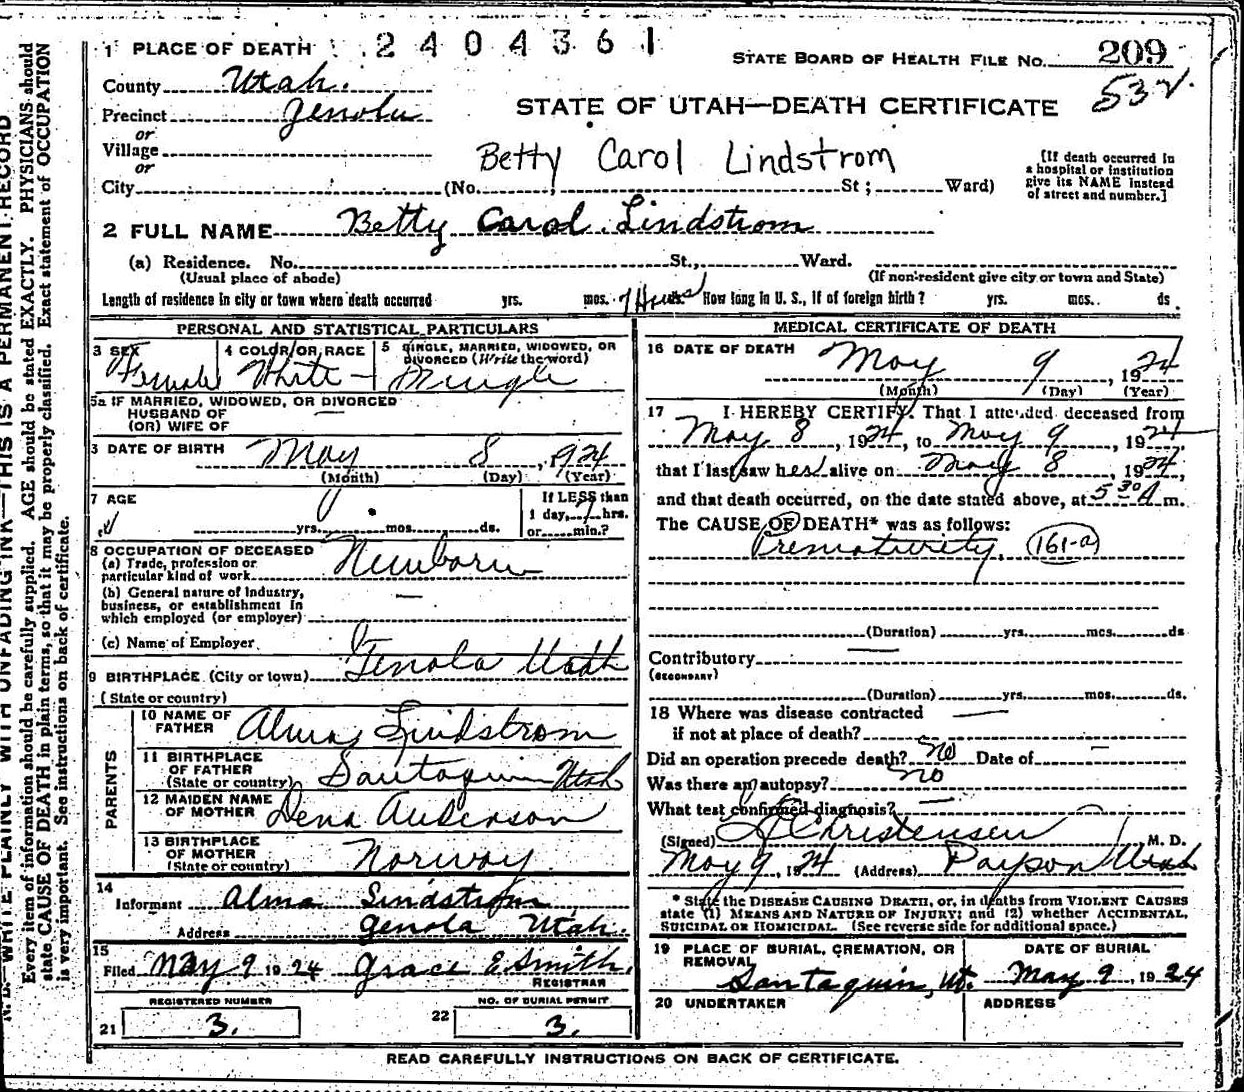 1 PLACE OF DEATH 2404361
STATE BOARD OF HEALTH FILE NO. 209
County Utah.
532
STATE OF UTAH—DEATH CERTIFICATE
Precinct Genola
or
Village
or
Betty Carol Lindstrom
[If death occurred in
a hospital or institution
give its NAME instead
of street and number.]
City (No. ; St ; Ward)
2 FULL NAME Betty Carol Lindstrom
(a) Residence. No. St., Ward.
(Usual place of abode) (If non-resident give city or town and State)
Length of residence in city or town where death occurred yrs. mos. 7 Hours How long in U. S., if of foreign birth? yrs. mos. ds.
PERSONAL AND STATISTICAL PARTICULARS
3 SEX 4 COLOR OR RACE 5 SINGLE, MARRIED, WIDOWED, OR
DIVORCED (Write the word)
Female White Single
5a IF MARRIED, WIDOWED, OR DIVORCED
HUSBAND OF
(OR) WIFE OF
DATE OF BIRTH May 8, 1924
(Month) (Day) (Year)
7 AGE
If LESS than
1 day, 7 hrs.
or min.?
yrs. mos. ds.
8 OCCUPATION OF DECEASED
(a) Trade, profession or
particular kind of work Newborn
(b) General nature of industry,
business, or establishment in
which employed (or employer)
(c) Name of Employer
9 BIRTHPLACE (City or town) Genola Utah
(State or country)
PARENTS
10 NAME OF
FATHER Alma Lindstrom
11 BIRTHPLACE
OF FATHER
(State or country) Santaquin Utah
12 MAIDEN NAME
OF MOTHER Lena Anderson
13 BIRTHPLACE
OF MOTHER
(State or country) Norway
14
Informant Alma Lindstrom
Address Genola Utah.
15
Filed May 9 1924 Grace E. Smith.
REGISTRAR
REGISTERED NUMBER NO. OF BURIAL PERMIT
21 3. 22 3.
MEDICAL CERTIFICATE OF DEATH
16 DATE OF DEATH May 9, 1924
(Month) (Day) (Year)
17 I HEREBY CERTIFY, That I attended deceased from
May 8, 1924, to May 9, 1924
that I last saw her alive on May 8, 1924,
and that death occurred, on the date stated above, at 5 30 A m.
The CAUSE OF DEATH* was as follows:
Prematurity. (161-a)
(Duration) yrs. mos. ds
Contributory
(SECONDARY)
(Duration) yrs. mos. ds.
18 Where was disease contracted
if not at place of death?
Did an operation precede death? no Date of
Was there an autopsy? no
What test confirmed diagnosis?
(Signed) Christensen M. D.
May 9, 1924 (Address) Payson Utah
* State the DISEASE CAUSING DEATH, or, in deaths from VIOLENT CAUSES
state (1) MEANS AND NATURE OF INJURY; and (2) whether ACCIDENTAL,
SUICIDAL OR HOMICIDAL. (See reverse side for additional space.)
19 PLACE OF BURIAL, CREMATION, OR
REMOVAL DATE OF BURIAL
Santaquin, Ut. May 9, 1924
20 UNDERTAKER ADDRESS
READ CAREFULLY INSTRUCTIONS ON BACK OF CERTIFICATE.
WRITE PLAINLY WITH UNFADING INK—THIS IS A PERMANENT RECORD
Every item of information should be carefully supplied. AGE should be stated EXACTLY. PHYSICIANS should
state CAUSE OF DEATH in plain terms, so that it may be properly classified. Exact statement of OCCUPATION
is very important. See instructions on back of certificate.